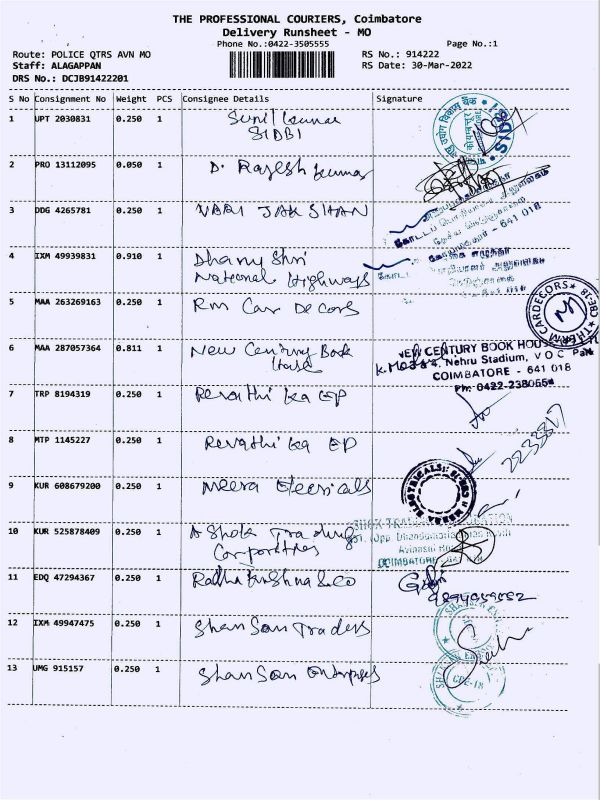 THE PROFESSIONAL COURIERS, Coimbatore
Delivery Runsheet - MO
Phone No.:0422-3505555 Page No.:1
Route: POLICE QTRS AVN MO RS No.: 914222
Staff: ALAGAPPAN RS Date: 30-Mar-2022
DRS No.: DCJB91422201
S No Consignment No Weight PCS Consignee Details Signature
1 UPT 2030831 0.250 1 Sunil kumar
SIDBI
2 PRO 13112095 0.050 1 D. Rajesh kumar
3 DDG 4265781 0.250 1 JAKSHAN
641 018
4 IXM 49939831 0.910 1 Dhanu Shri
National Highways
5 MAA 263269163 0.250 1 Rm Car Decors
CARDECORS CBE-18
6 MAA 287057364 0.811 1 New Century Book
House
NEW CENTURY BOOK HOUSE
Nehru Stadium, V O C Park
COIMBATORE - 641 018
Ph: 0422-238055
7 TRP 8194319 0.250 1 Revathi ka EP
8 MTP 1145227 0.250 1 Revathi ka EP
9 KUR 608679200 0.250 1 Meera Elecricals
10 KUR 525878409 0.250 1 Ashok Trading
Corporation
COIMBATORE
11 EDQ 47294367 0.250 1 Radha krishna & co
12 IXM 49947475 0.250 1 Shan San Traders
13 UMG 915157 0.250 1 Shan San Enterprises
CBE-18